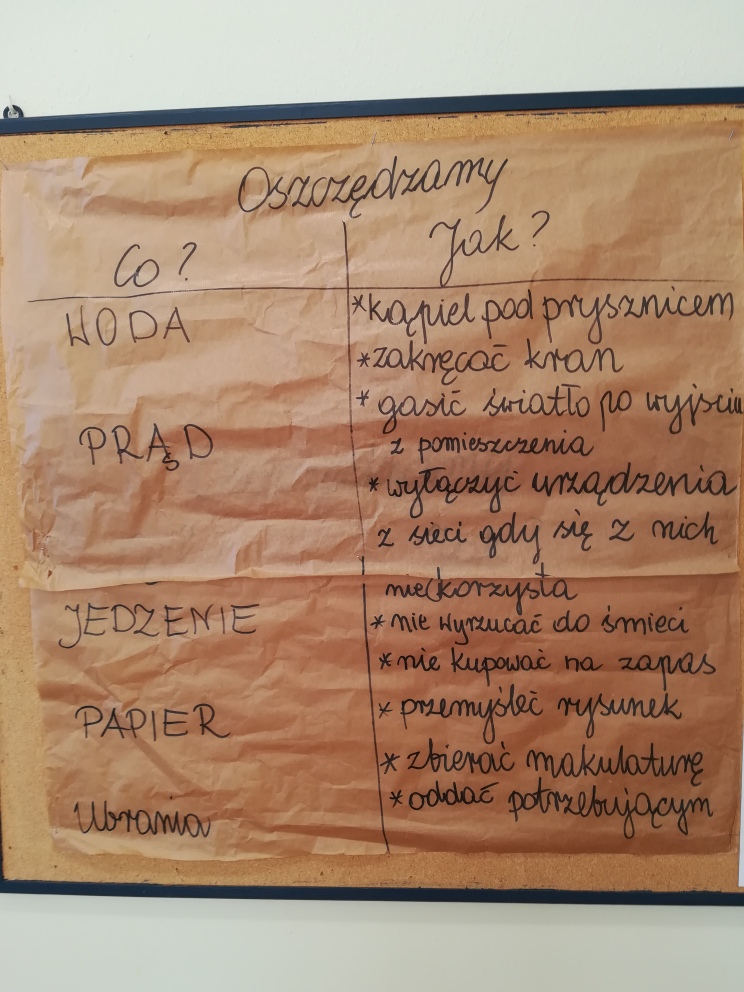 Oszczędzamy
Co?
Jak?
WODA
*kąpiel pod prysznicem
*zakręcać kran
PRĄD
* gasić światło po wyjściu
z pomieszczenia
* wyłączyć urządzenia
z sieci gdy się z nich
nie korzysta
JEDZENIE
* nie wyrzucać do śmieci
* nie kupować na zapas
PAPIER
* przemyśleć rysunek
* zbierać makulaturę
Ubrania
* oddać potrzebującym